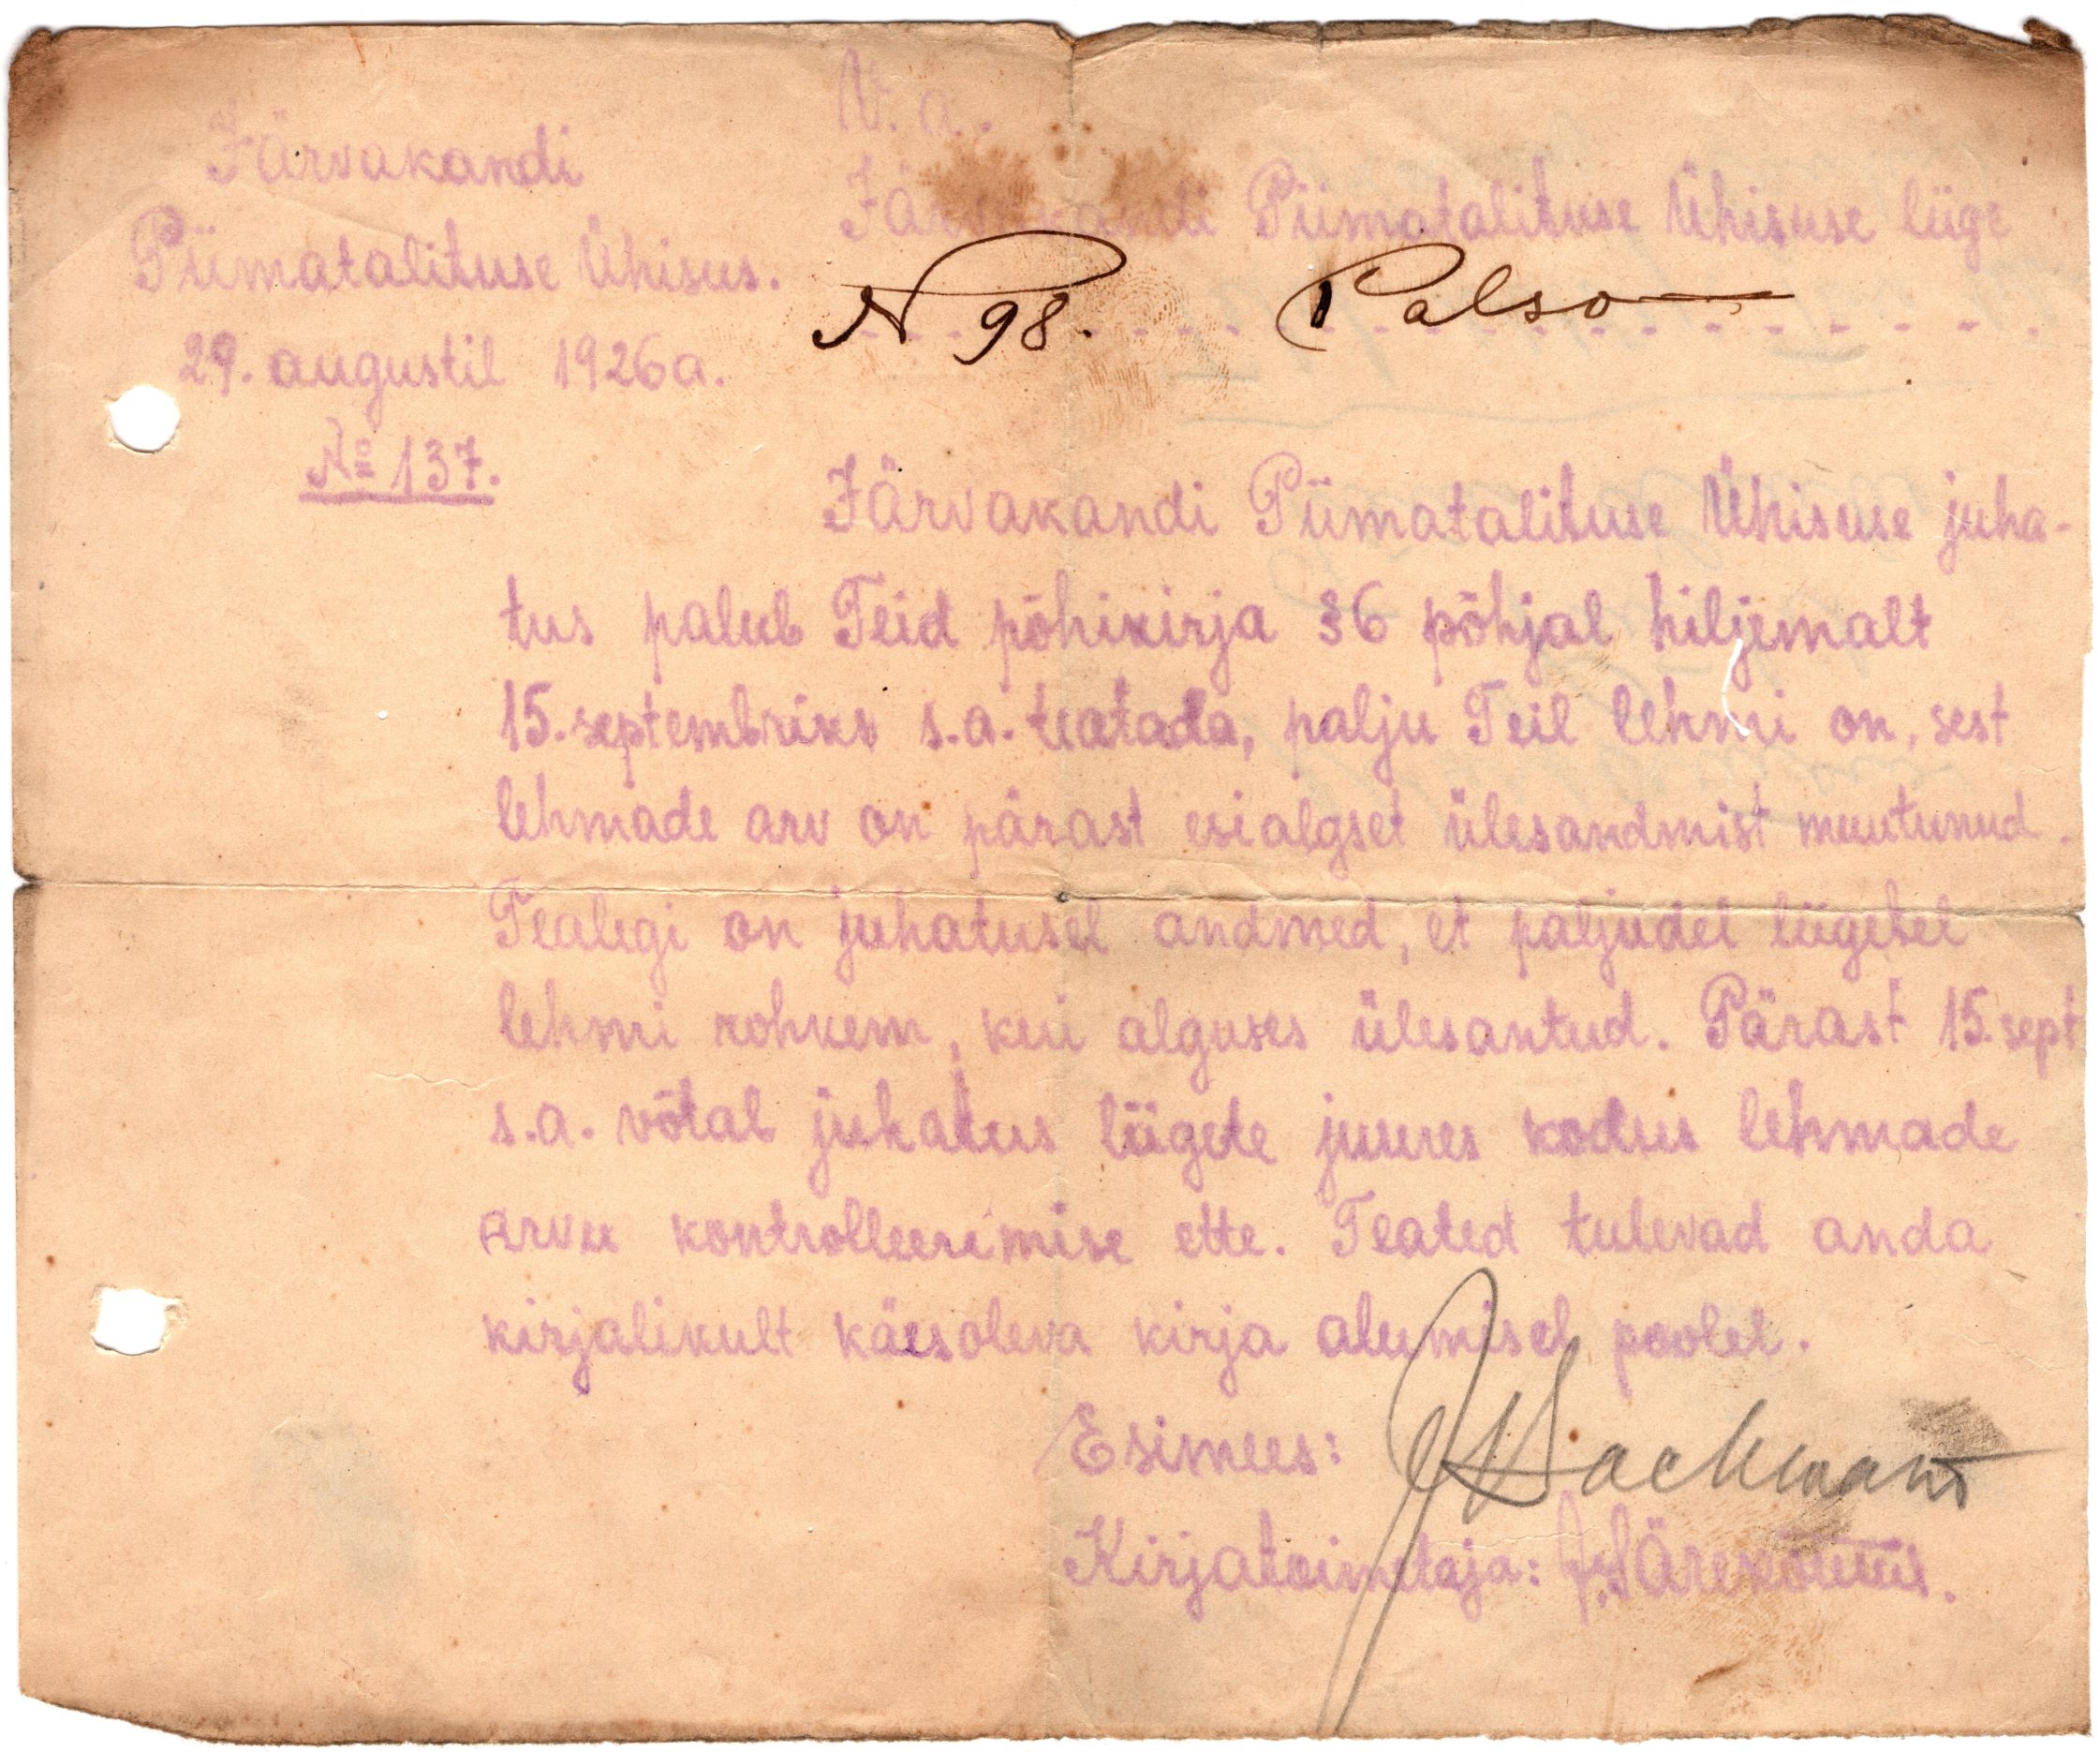 Järvakandi
Piimatalituse Ühisus.
29. augustil 1926 a.
№ 137.
V. a.
Järvakandi Piimatalituse Ühisuse liige
N 98. Palso
Järvakandi Piimatalituse Ühisuse juha-
tus palub Teid põhikirja §6 põhjal hiljemalt
15. septembriks s.a. teatada, palju Teil lehmi on, sest
lehmade arv on pärast esialgset ülesandmist muutunud.
Tealegi on juhatusel andmed, et paljudel liigetel
lehmi rohkem, kui alguses ülesantud. Pärast 15. sept
s.a. võtab juhatus liigete juures kodus lehmade
arvu kontrolleerimise ette. Teated tulevad anda
kirjalikult käesoleva kirja alumisel poolel.
Esimees:
Kirjatoimetaja: